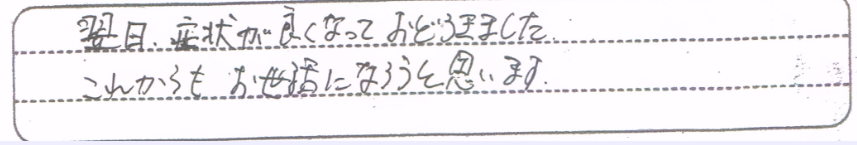 翌日、症状が良くなっておどろきました.
これからもお世話になろうと思います.